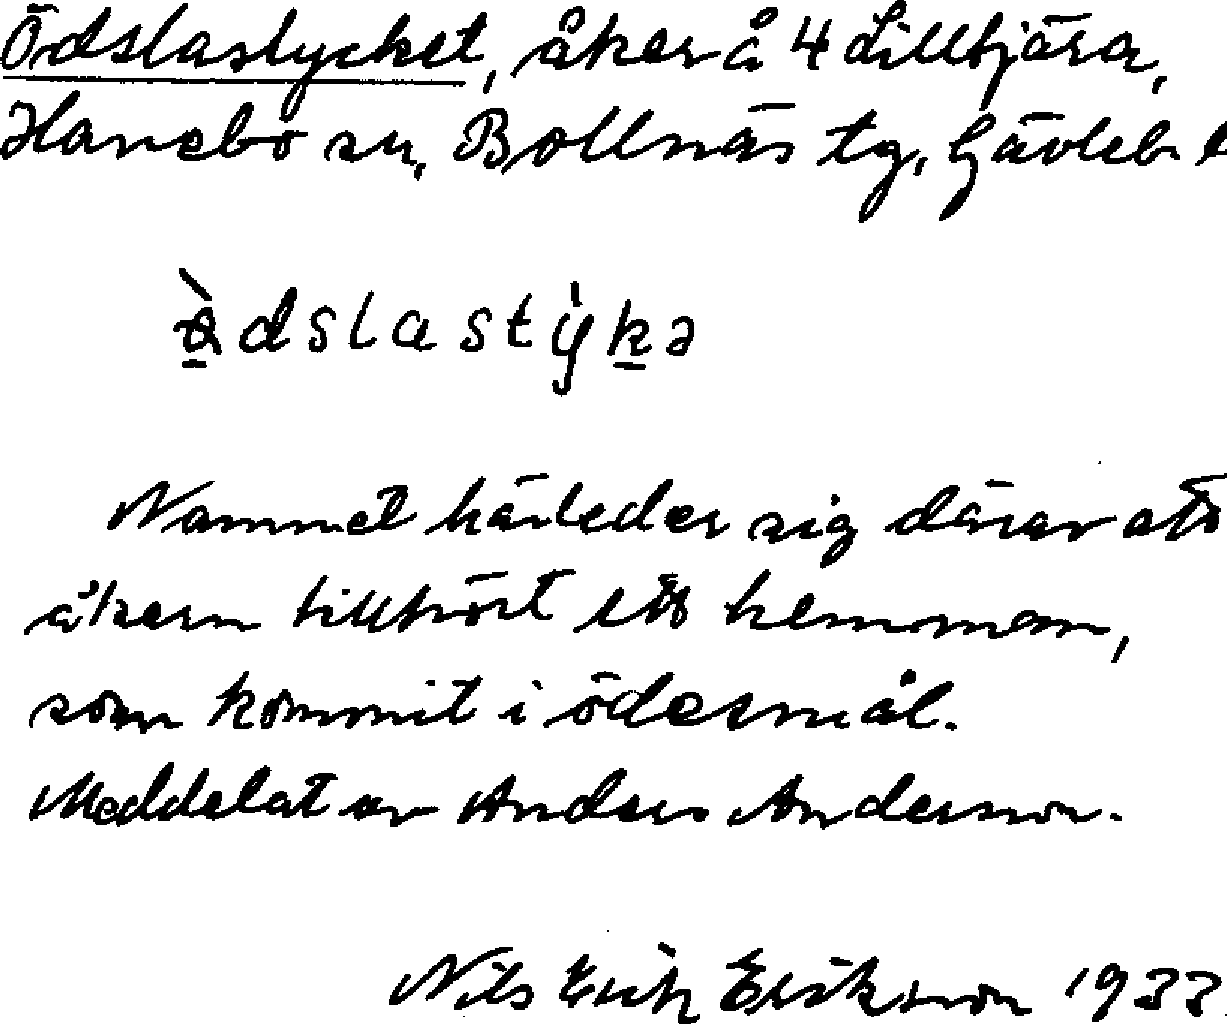 Ödslastycket, åker å 4 Lillbjära,
Hanebo sn, Bollnäs tg, Gävleb. l
ödslastykə
Namnet härleder sig därav att
åkern tillhört ett hemman,
som kommit i ödesmål.
Meddelat av Anders Andersson.
Nils Erik Erikson 1933